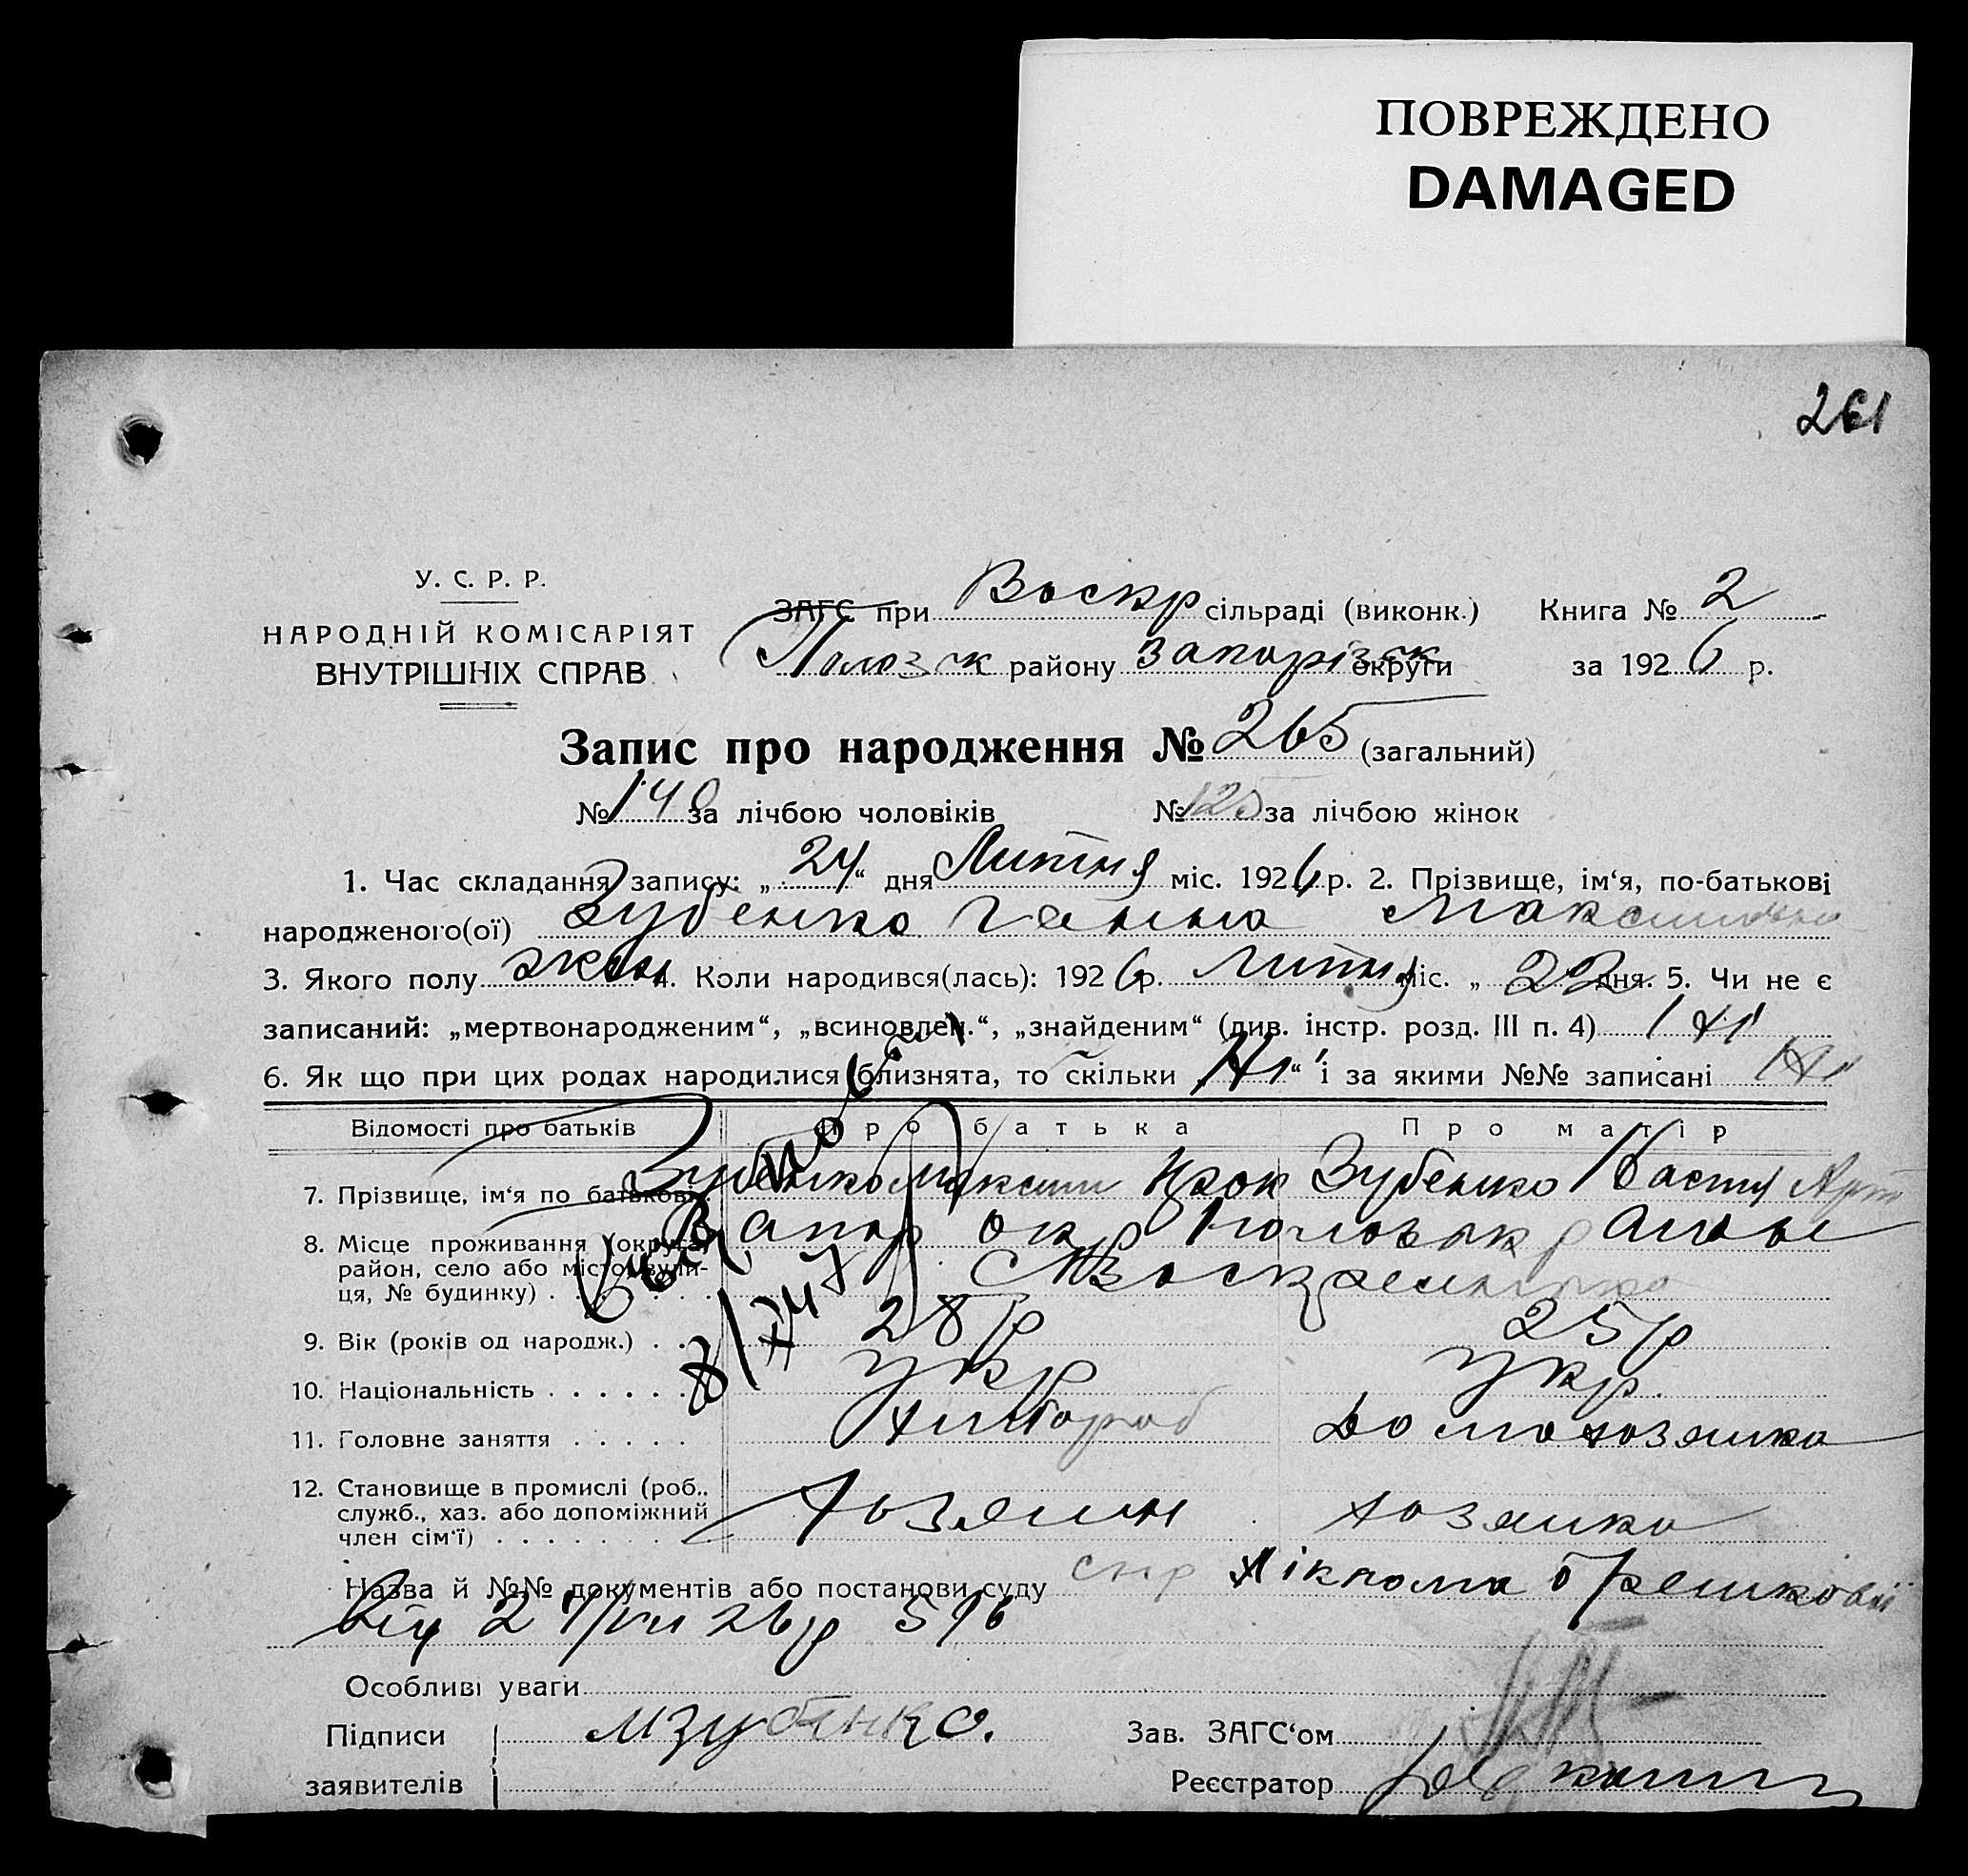 ПОВРЕЖДЕНО
DAMAGED
261
У. С. Р. Р.
НАРОДНІЙ КОМІСАРІЯТ
ВНУТРІШНІХ СПРАВ
ЗАГС при Воскр сільраді (виконк.) Книга № 2
Полозск району Запорізьк округи за 1926 р.
Запис про народження № 265 (загальний)
№ 140 за лічбою чоловіків № 125 за лічбою жінок
1. Час складання запису: „24“ дня Липня міс. 1926 р. 2. Прізвище, ім‘я, по-батькові
народженого(ої) Зубенко Ганна Максимівна
3. Якого полу жін 4. Коли народився(лась): 1926 р. Липня міс. „22 дня. 5. Чи не є
записаний: „мертвонародженим“, „всиновлен.“, „знайденим“ (див. інстр. розд. III п. 4) Ні
6. Як що при цих родах народилися близнята, то скільки „Ні“ і за якими №№ записані Ні
Відомості про батьків Про батька Про матір
7. Прізвище, ім‘я по батькові Зубенко Максим Зубенко
8. Місце проживання (округа, Запор окр
район, село або місто, вули-
ця, № будинку) . . . .
9. Вік (років од народж.) . . 28 р 25 р
10. Національність . . . . . . укр укр.
11. Головне заняття . . . . . Хлібороб Домохозяйка
12. Становище в промислі (роб.,
служб., хаз. або допоміжний Хозяин хозяйка
член сім‘ї) . . . . . . .
Назва й №№ документів або постанови суду
від 24/VII 26 р 596
Особливі уваги
Підписи МЗубенко. Зав. ЗАГС‘ом
заявителів Реєстратор